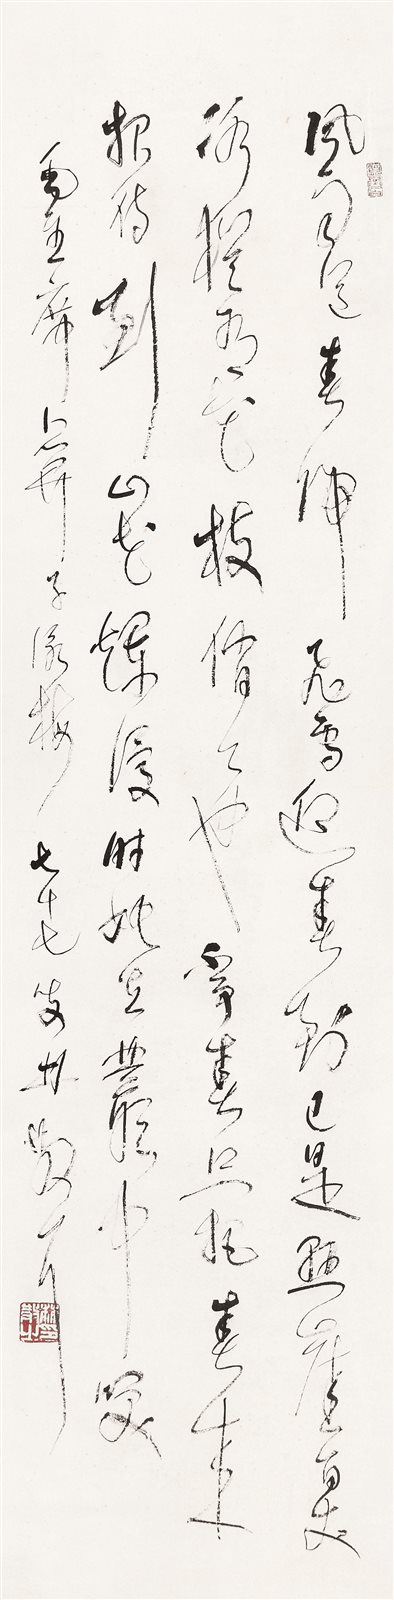 風雨送春歸飛雪迎春到已是懸崖百丈
冰猶有花枝俏々也不爭春只把春來
報待到山花爛漫時她在叢中笑
毛主席卜算子詠梅 七十七叟林散耳